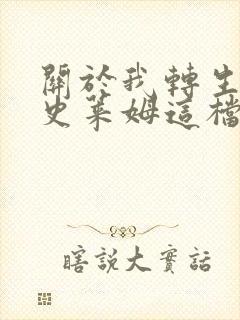 關於我轉生
史萊姆這檔
瞎說大實話